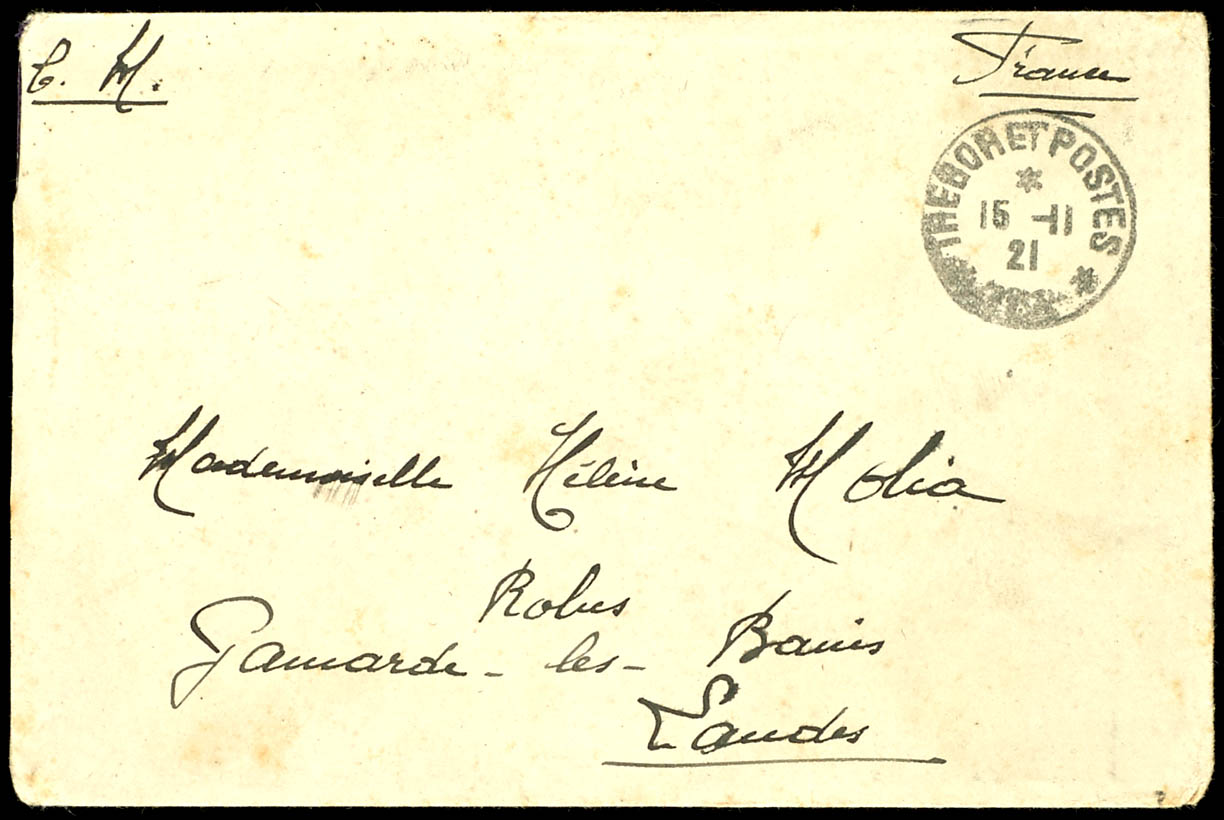 C. M.
France
TRESOR ET POSTES
15 -11
21
Mademoiselle Hélène Molia
Robes
Gamarde-les-Bains
Landes